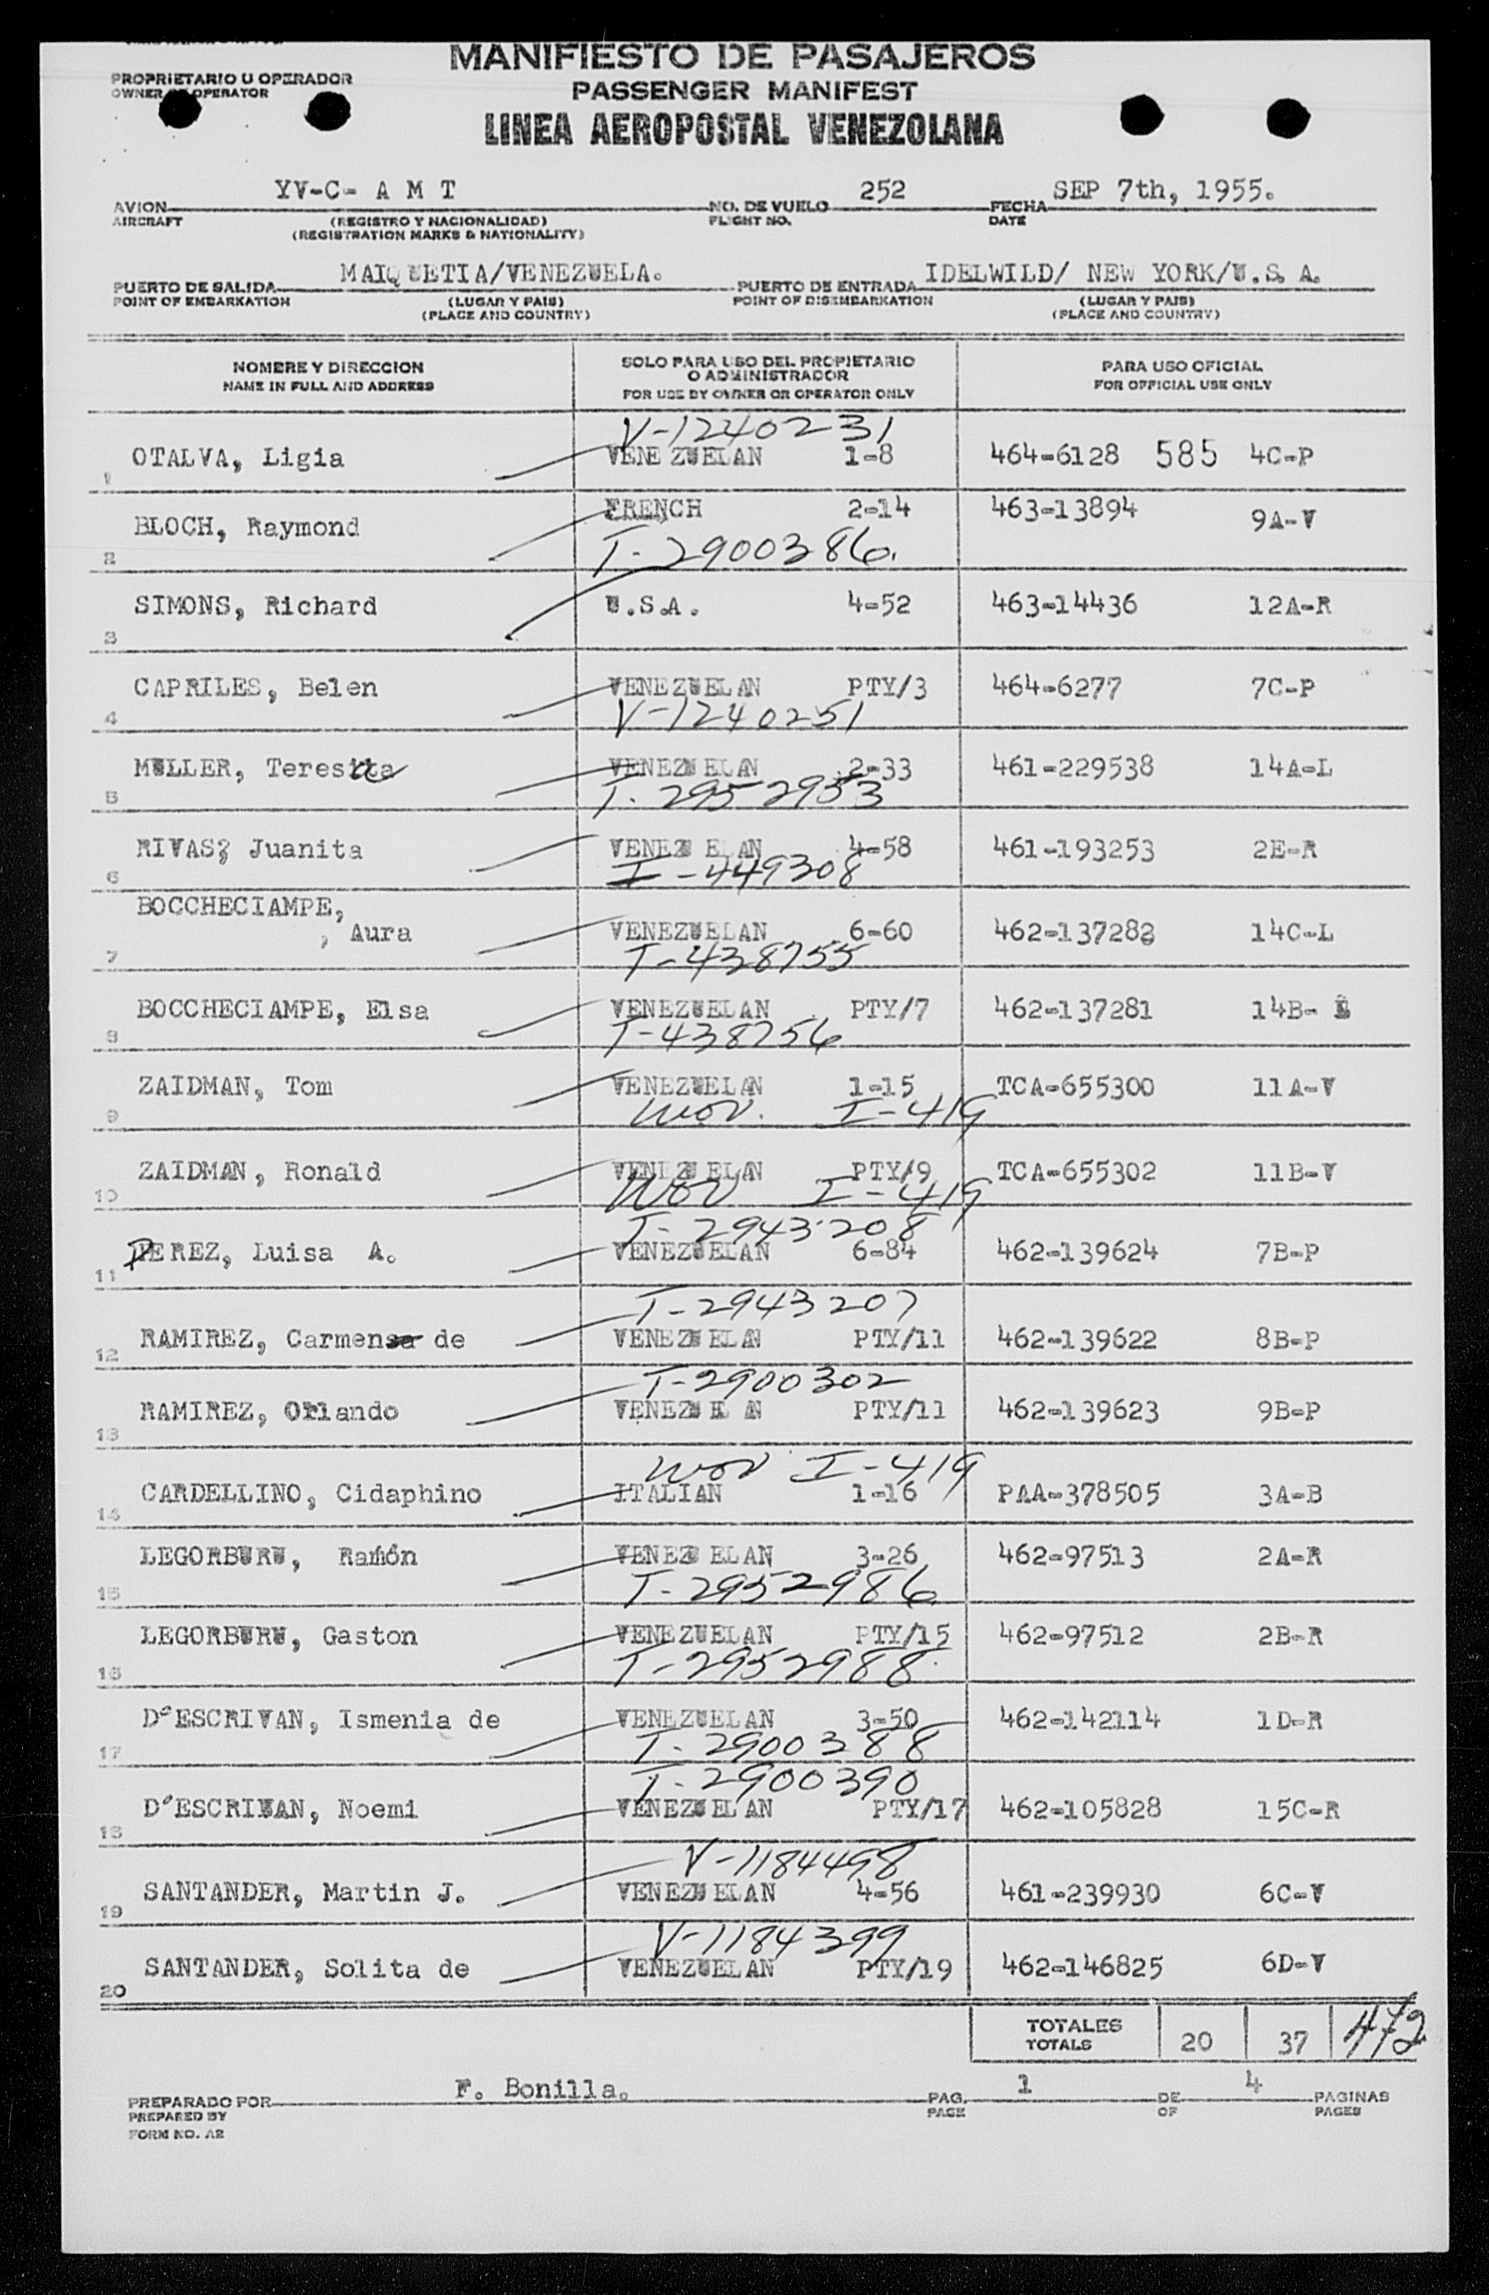 MANIFIESTO DE PASAJEROS
PROPRIETARIO U OPERADOR
OWNER OR OPERATOR
PASSENGER MANIFEST
LINEA AEROPOSTAL VENEZOLANA
AVION YV-C- A M T NO. DE VUELO 252 FECHA SEP 7th, 1955.
AIRCRAFT (REGISTRO Y NACIONALIDAD) FLIGHT NO. DATE
(REGISTRATION MARKS & NATIONALITY)
PUERTO DE SALIDA MAIQUETIA/VENEZUELA. PUERTO DE ENTRADA IDELWILD/ NEW YORK/U.S. A.
POINT OF EMBARKATION (LUGAR Y PAIS) POINT OF DISEMBARKATION (LUGAR Y PAIS)
(PLACE AND COUNTRY) (PLACE AND COUNTRY)
NOMBRE Y DIRECCION SOLO PARA USO DEL PROPIETARIO O ADMINISTRADOR PARA USO OFICIAL
NAME IN FULL AND ADDRESS FOR USE BY OWNER OR OPERATOR ONLY FOR OFFICIAL USE ONLY
V-1240231
1 OTALVA, Ligia VENEZUELAN 1-8 464-6128 585 4C-P
2 BLOCH, Raymond FRENCH 2-14 463-13894 9A-V
T-2900386.
3 SIMONS, Richard U.S.A. 4-52 463-14436 12A-R
4 CAPRILES, Belen VENEZUELAN PTY/3 464-6277 7C-P
V-1240251
5 MULLER, Teresita VENEZUELAN 2-33 461-229538 14A-L
T-2952953
6 RIVAS, Juanita VENEZUELAN 4-58 461-193253 2E-R
I-449308
BOCCHECIAMPE,
7 , Aura VENEZUELAN 6-60 462-137282 14C-L
T-438755
8 BOCCHECIAMPE, Elsa VENEZUELAN PTY/7 462-137281 14B- L
T-438756
9 ZAIDMAN, Tom VENEZUELAN 1-15 TCA-655300 11A-V
wov. I-419
10 ZAIDMAN, Ronald VENEZUELAN PTY/9 TCA-655302 11B-V
wov I-419
T-2943208
11 PEREZ, Luisa A. VENEZUELAN 6-84 462-139624 7B-P
T-2943207
12 RAMIREZ, Carmensa de VENEZUELAN PTY/11 462-139622 8B-P
T-2900302
13 RAMIREZ, Orlando VENEZUELAN PTY/11 462-139623 9B-P
wov I-419
14 CARDELLINO, Cidaphino ITALIAN 1-16 PAA-378505 3A-B
15 LEGORBURU, Ramón VENEZUELAN 3-26 462-97513 2A-R
T-2952986
16 LEGORBURU, Gaston VENEZUELAN PTY/15 462-97512 2B-R
T-2952988
17 D'ESCRIVAN, Ismenia de VENEZUELAN 3-50 462-142114 1D-R
T-2900388
T-2900390
18 D'ESCRIVAN, Noemi VENEZUELAN PTY/17 462-105828 15C-R
V-1184498
19 SANTANDER, Martin J. VENEZUELAN 4-56 461-239930 6C-V
V-1184399
20 SANTANDER, Solita de VENEZUELAN PTY/19 462-146825 6D-V
TOTALES
TOTALS 20 37 472
PREPARADO POR F. Bonilla. PAG. 1 DE 4 PAGINAS
PREPARED BY PAGE OF PAGES
FORM NO. A2